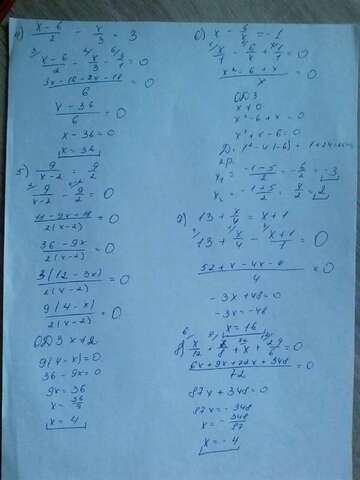 4) x-6/2 - x/3 = 3
x-6/2 - x/3 - 3/1 = 0
3x-18-2x-18/6 = 0
x-36/6 = 0
x-36=0
x=36
5) 9/x-2 = 9/2
9/x-2 - 9/2 = 0
2(x-2) = 0
36-9x/2(x-2) = 0
3(12-3x)/2(x-2) = 0
9(4-x)/2(x-2) = 0
ОДЗ x≠2
9(4-x)=0
36-9x=0
9x=36
x=36/9
x=4
6) x - 6/x = -1
x/1 - 6/x + 1/1 = 0
x²-6+x/x = 0
ОДЗ
x≠0
x²-6+x=0
x²+x-6=0
x₁ = -1-5/2 = -6/2 = -3
x₂ = -1+5/2 = 4/2 = 2
7) 13 + x/4 = x+1
13 + x/4 - x+1/1 = 0
-3x+48=0
-3x=-48
x=16
8) x/12 + x/8 + x + 29/6 = 0
6x+9x+72x+348/72 = 0
87x+348=0
87x=-348
x=-348/87
x=-4